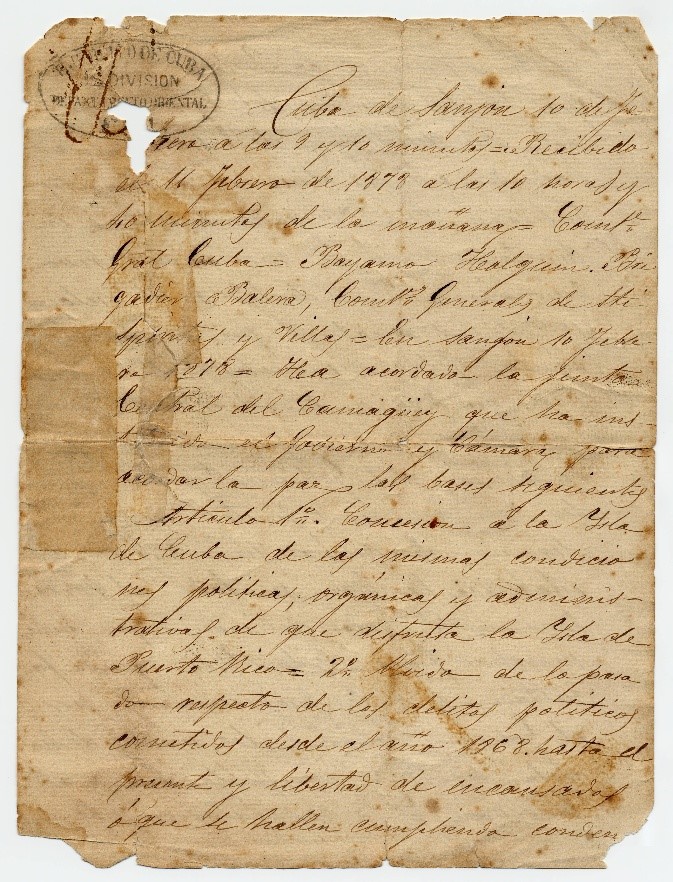 DE CUBA
DIVISION
DEPARTAMENTO ORIENTAL
Cuba de Sanjon 10 de Fe
brero a las 9 y 10 minutos = Recibido
el 11 Febrero de 1878 a las 10 horas y
minutos de la mañana = Comte
Gral Cuba = Bayamo Holguin. Bri
gadier Balera, Comte General de
Spíritus y Villas = En Sanjon 10 Febre
ro 1878 = Ha acordado la junta
Central del Camagüey que ha ins-
tuido el Gobierno y Cámara para
acordar la paz, las bases siguientes
Artículo 1o. Concesion a la Isla
de Cuba de las mismas condicio
nes políticas, orgánicas y adminis-
trativas de que disfruta la Isla de
Puerto Rico = 2o Olvido de lo pasa
do respecto de los delitos políticos
cometidos desde el año 1868 hasta el
presente y libertad de encausados
ó que se hallen cumpliendo conden